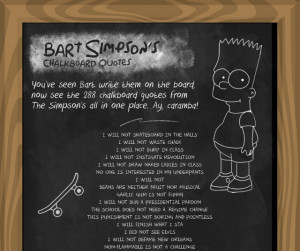 BART SIMPSON'S
CHALKBOARD QUOTES
You've seen Bart write them on the board,
now see the 288 chalkboard quotes from
The Simpson's all in one place. Ay, caramba!
I WILL NOT SKATEBOARD IN THE HALLS
I WILL NOT WASTE CHALK
I WILL NOT BURP IN CLASS
I WILL NOT INSTIGATE REVOLUTION
I WILL NOT DRAW NAKED LADIES IN CLASS
NO ONE IS INTERESTED IN MY UNDERPANTS
I WILL NOT
BEANS ARE NEITHER FRUIT NOR MUSICAL
GARLIC GUM IS NOT FUNNY
I WILL NOT BUY A PRESIDENTIAL PARDON
THE SCHOOL DOES NOT NEED A REGIME CHANGE
THIS PUNISHMENT IS NOT BORING AND POINTLESS
I WILL FINISH WHAT I STA
I DID NOT SEE ELVIS
I WILL NOT DEFAME NEW ORLEANS
NON-FLAMMABLE IS NOT A CHALLENGE